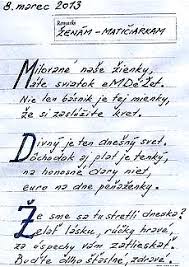 8. marec 2013
Romanka
ŽENÁM - MATIČIARKAM
Milované naše žienky,
Máte sviatok eMDéŽet.
Nie len básnik je tej mienky,
že si zaslúžite kvet.
Divný je ten dnešný svet.
Dôchodok aj plat je tenký,
na honosné dary niet,
euro na dne peňaženky.
Že sme sa tu stretli dneska?
Želať lásku, rúčky hravé,
za úspechy vám zatlieskať!
Buďte dlho šťastné, zdravé.